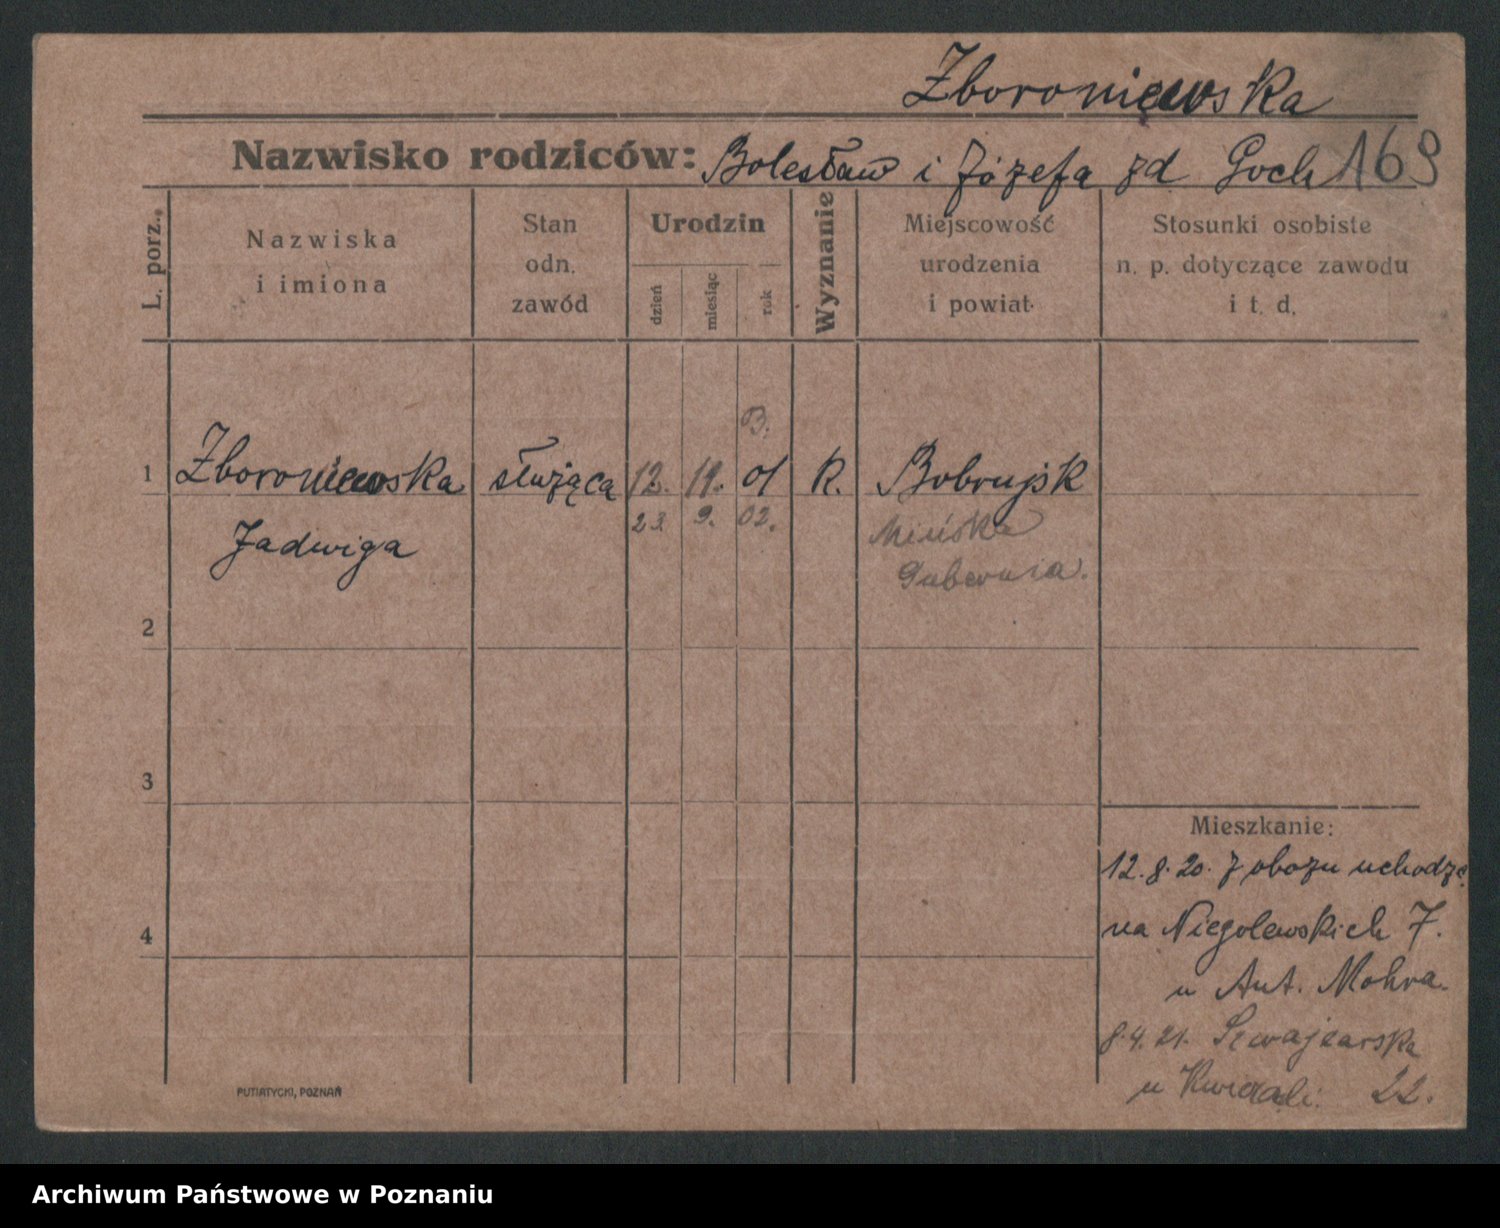 Zboroniewska
Nazwisko rodziców: Bolesław i Józefa zd Goch 169
L. porz.
Nazwiska i imiona
Stan odn. zawód
Urodzin
dzień miesiąc rok
Wyznanie
Miejscowość urodzenia i powiat
Stosunki osobiste n. p. dotyczące zawodu i t. d.
B.
1 Zboroniewska służąca 12. 11. 01 R. Bobrujsk
23. 9. 02. Mińska
Jadwiga
Gubernia.
2
3
Mieszkanie:
12.8.20. z obozu uchodźc.
4
na Niegolewskich 7.
u Ant. Mohra.
8.4.21. Szwajcarska
u 22.
PUTIATYCKI, POZNAŃ
Archiwum Państwowe w Poznaniu